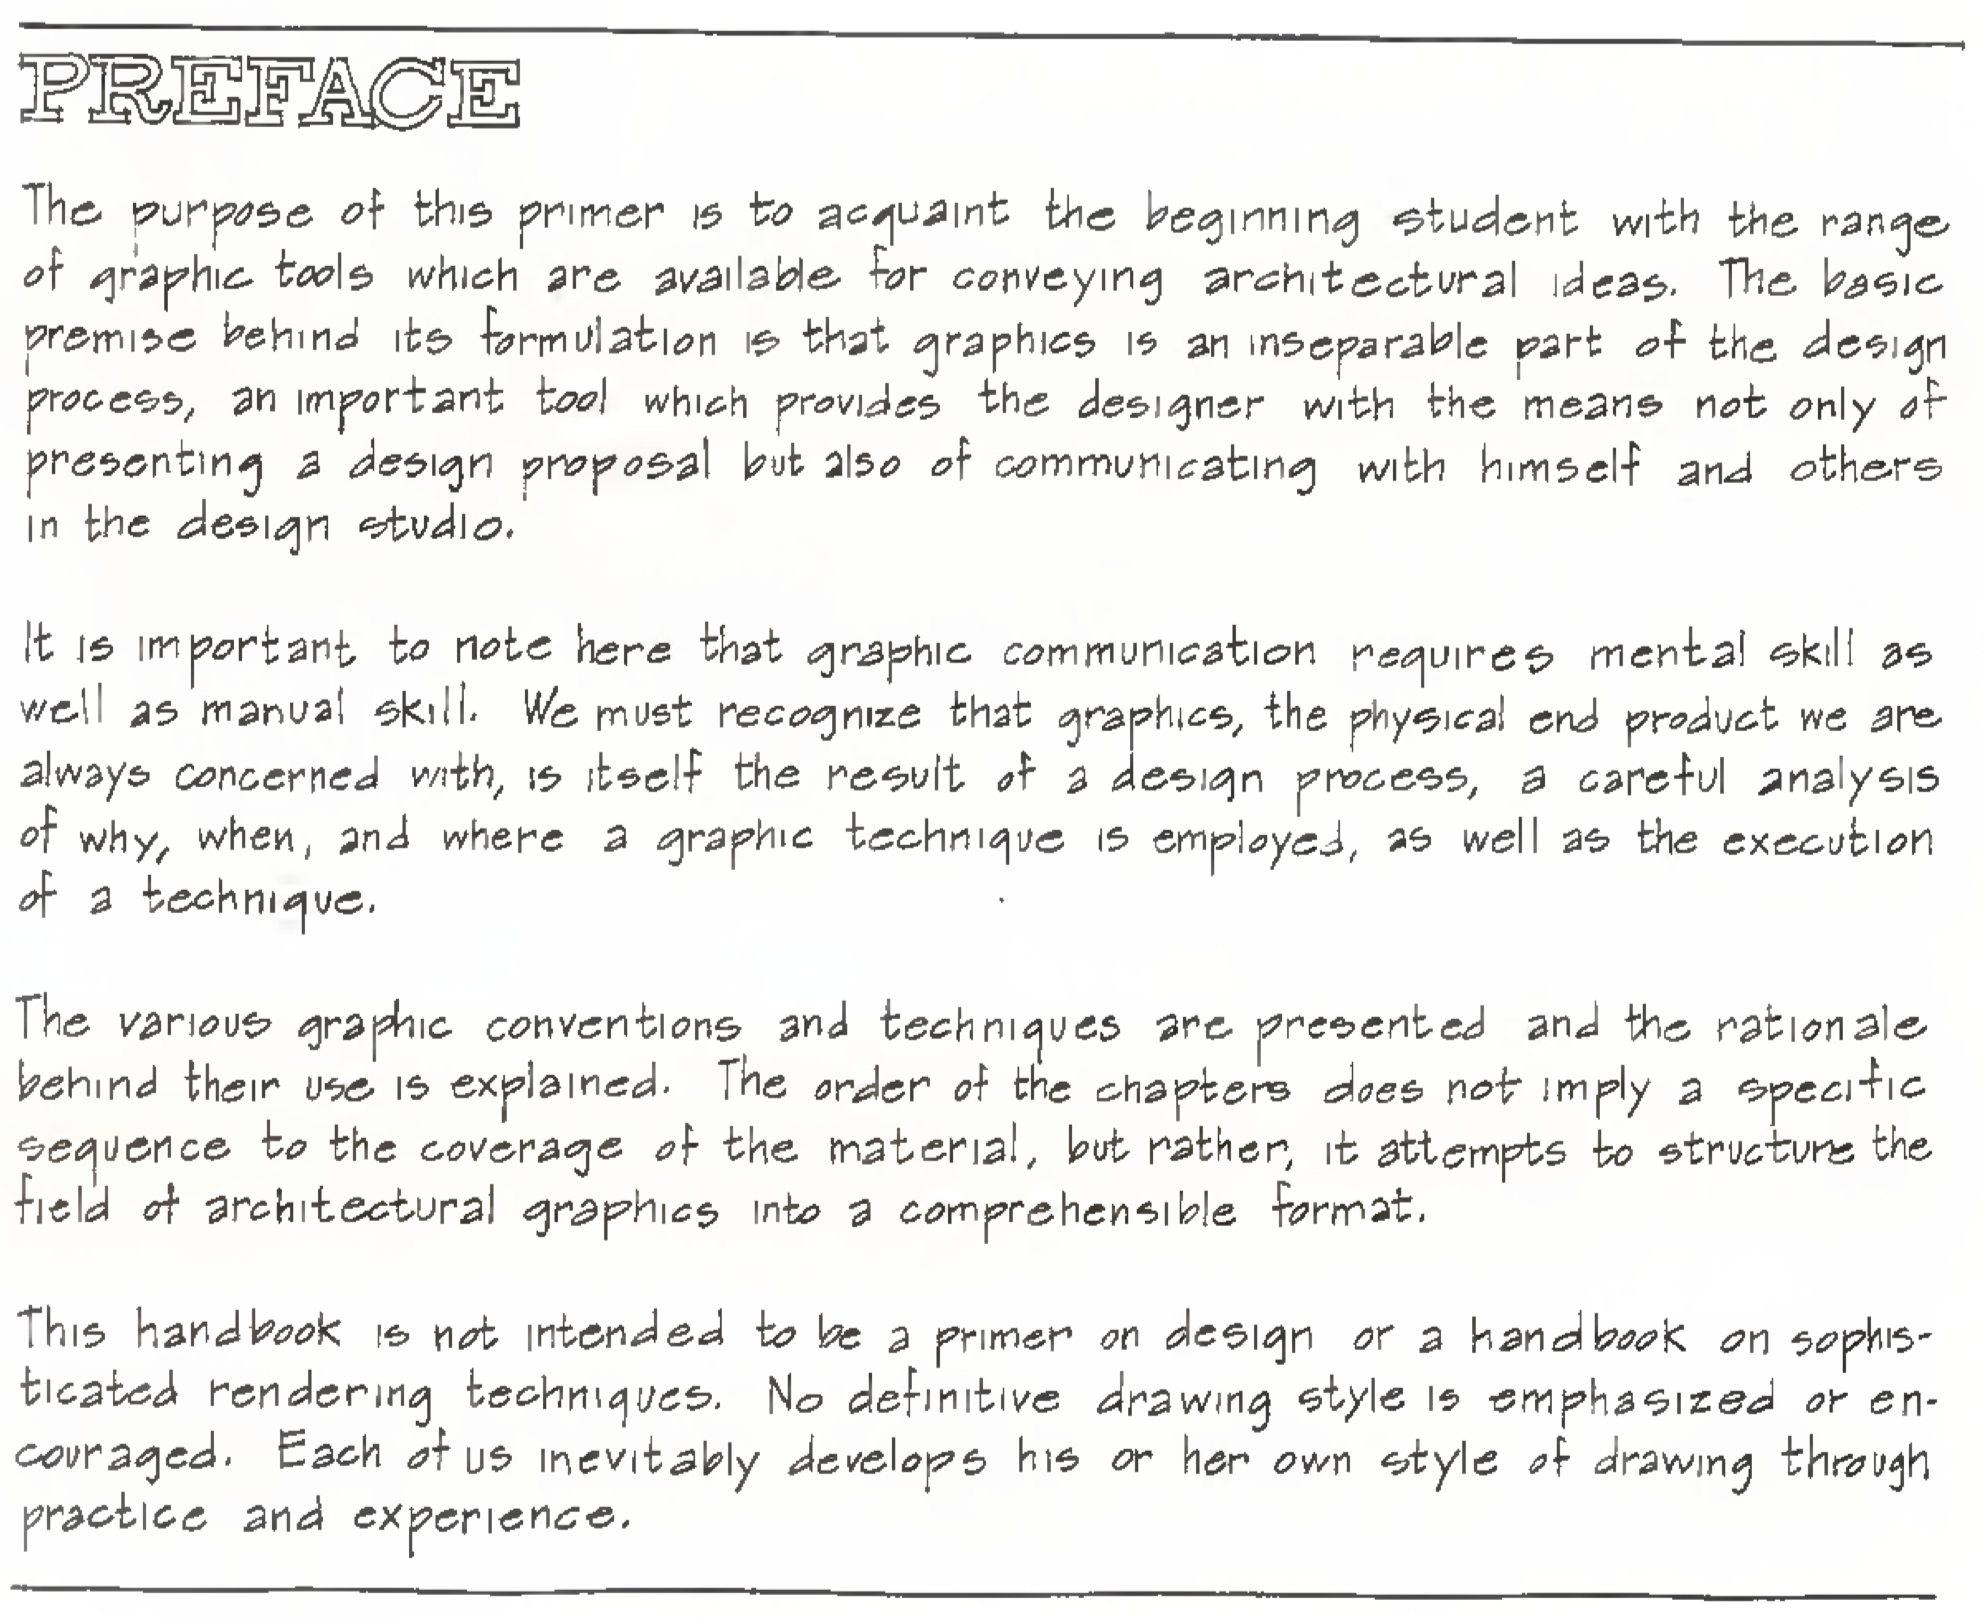 PREFACE
The purpose of this primer is to acquaint the beginning student with the range
of graphic tools which are available for conveying architectural ideas. The basic
premise behind its formulation is that graphics is an inseparable part of the design
process, an important tool which provides the designer with the means not only of
presenting a design proposal but also of communicating with himself and others
in the design studio.
It is important to note here that graphic communication requires mental skill as
well as manual skill. We must recognize that graphics, the physical end product we are
always concerned with, is itself the result of a design process, a careful analysis
of why, when, and where a graphic technique is employed, as well as the execution
of a technique.
The various graphic conventions and techniques are presented and the rationale
behind their use is explained. The order of the chapters does not imply a specific
sequence to the coverage of the material, but rather, it attempts to structure the
field of architectural graphics into a comprehensible format.
This handbook is not intended to be a primer on design or a handbook on sophis-
ticated rendering techniques. No definitive drawing style is emphasized or en-
couraged. Each of us inevitably develops his or her own style of drawing through
practice and experience.